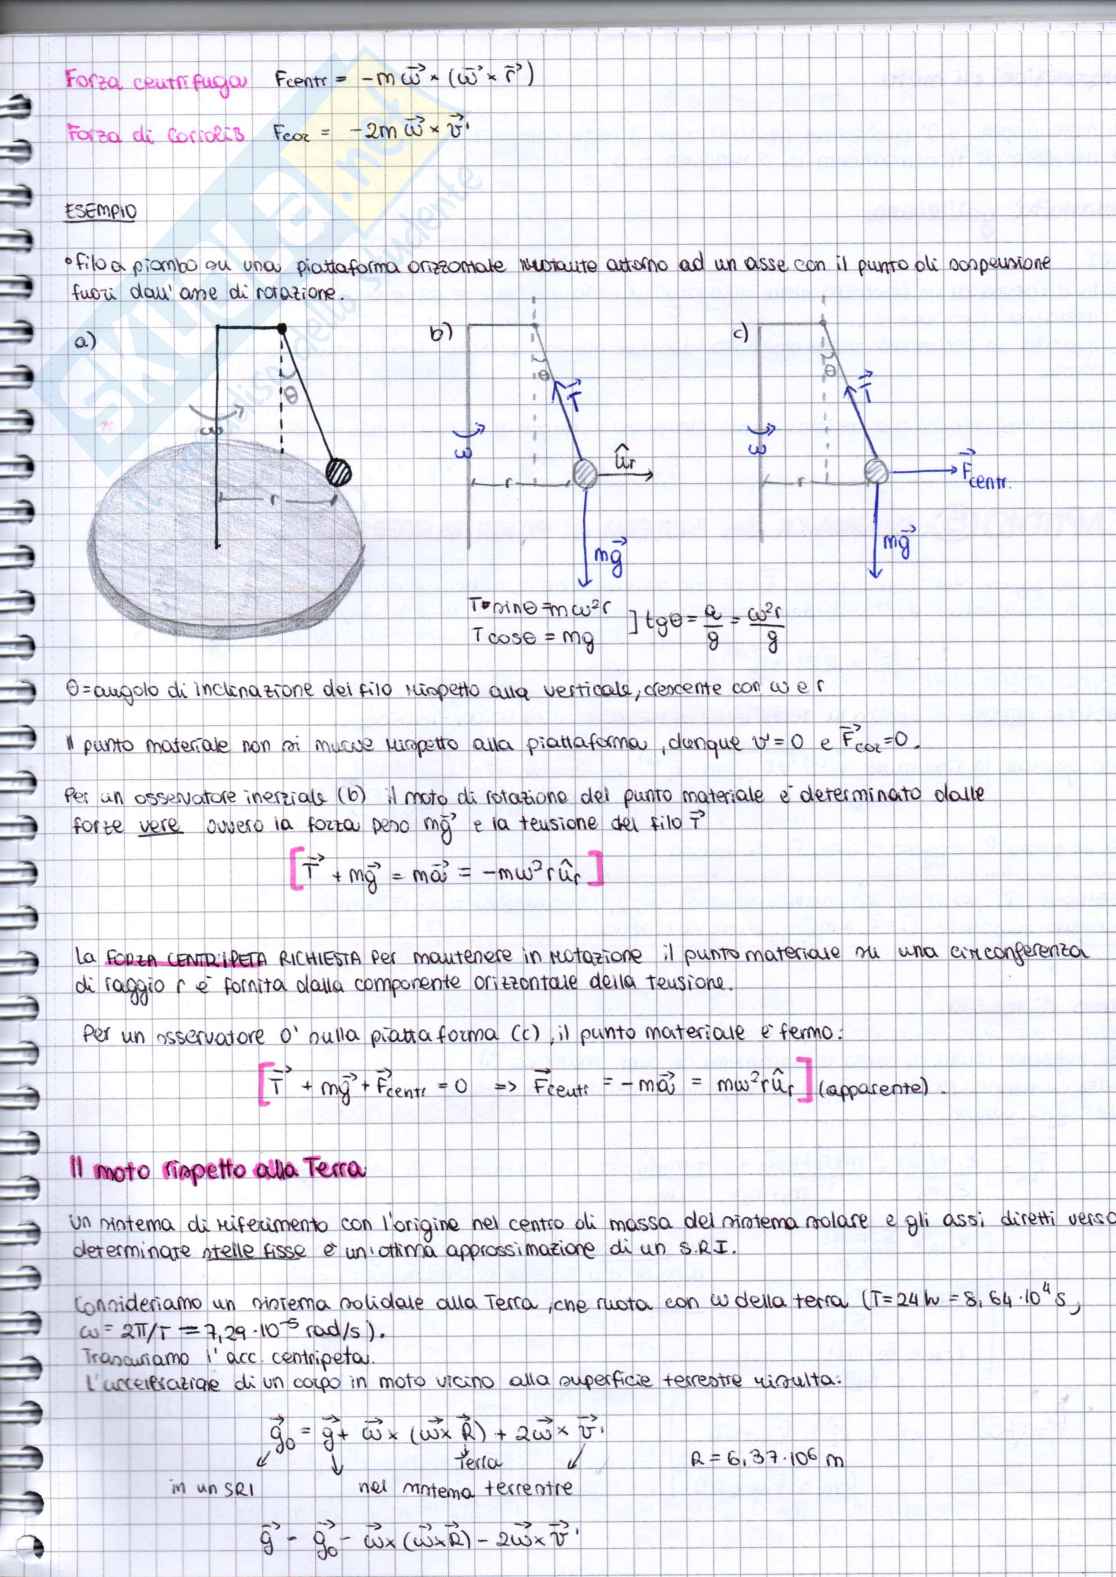 Forza centrifuga Fcentr = -m ω⃗ × (ω⃗ × r⃗)
Forza di Coriolis Fcor = -2m ω⃗ × v⃗'
ESEMPIO
• filo a piombo su una piattaforma orizzontale ruotante attorno ad un asse con il punto di sospensione
fuori dall'asse di rotazione.
a) b) c)
θ θ θ
T⃗ T⃗
ω ω ω
ûr F⃗centr.
r r r
mg⃗ mg⃗
T•sinθ = mω²r
T cosθ = mg
] tgθ = a/g = ω²r/g
θ = angolo di inclinazione del filo rispetto alla verticale, crescente con ω e r
Il punto materiale non si muove rispetto alla piattaforma, dunque v' = 0 e F⃗cor = 0.
Per un osservatore inerziale (b) il moto di rotazione del punto materiale è determinato dalle
forze vere ovvero la forza peso mg⃗ e la tensione del filo T⃗
[T⃗ + mg⃗ = ma⃗ = -mω²rûr]
La FORZA CENTRIPETA RICHIESTA per mantenere in rotazione il punto materiale su una circonferenza
di raggio r è fornita dalla componente orizzontale della tensione.
Per un osservatore O' sulla piattaforma (c), il punto materiale è fermo:
[T⃗ + mg⃗ + F⃗centr = 0 => F⃗centr = -ma⃗ = mω²rûr] (apparente).
Il moto rispetto alla Terra
Un sistema di riferimento con l'origine nel centro di massa del sistema solare e gli assi diretti verso
determinate stelle fisse è un'ottima approssimazione di un S.R.I.
Consideriamo un sistema solidale alla Terra, che ruota con ω della terra (T = 24h = 8,64·10⁴ s,
ω = 2π/T = 7,29·10⁻⁵ rad/s).
Trascuriamo l'acc. centripeta.
L'accelerazione di un corpo in moto vicino alla superficie terrestre risulta:
g⃗0 = g⃗ + ω⃗ × (ω⃗ × R⃗) + 2ω⃗ × v⃗'
Terra R = 6,37·10⁶ m
in un SRI nel sistema terrestre
g⃗ = g⃗0 - ω⃗ × (ω⃗ × R⃗) - 2ω⃗ × v⃗'
SKUOLA.net